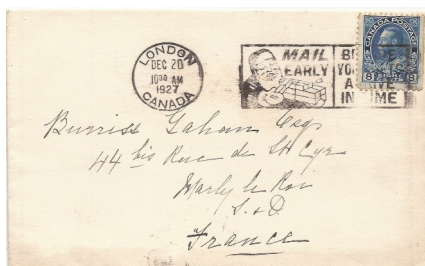 LONDON
DEC 20
10 30 AM
1927
CANADA
MAIL
EARLY
IN TIME
CANADA POSTAGE
Burriss Gahan Esq
44 bis Rue de St Cyr
Marly le Roi
S. & O.
France